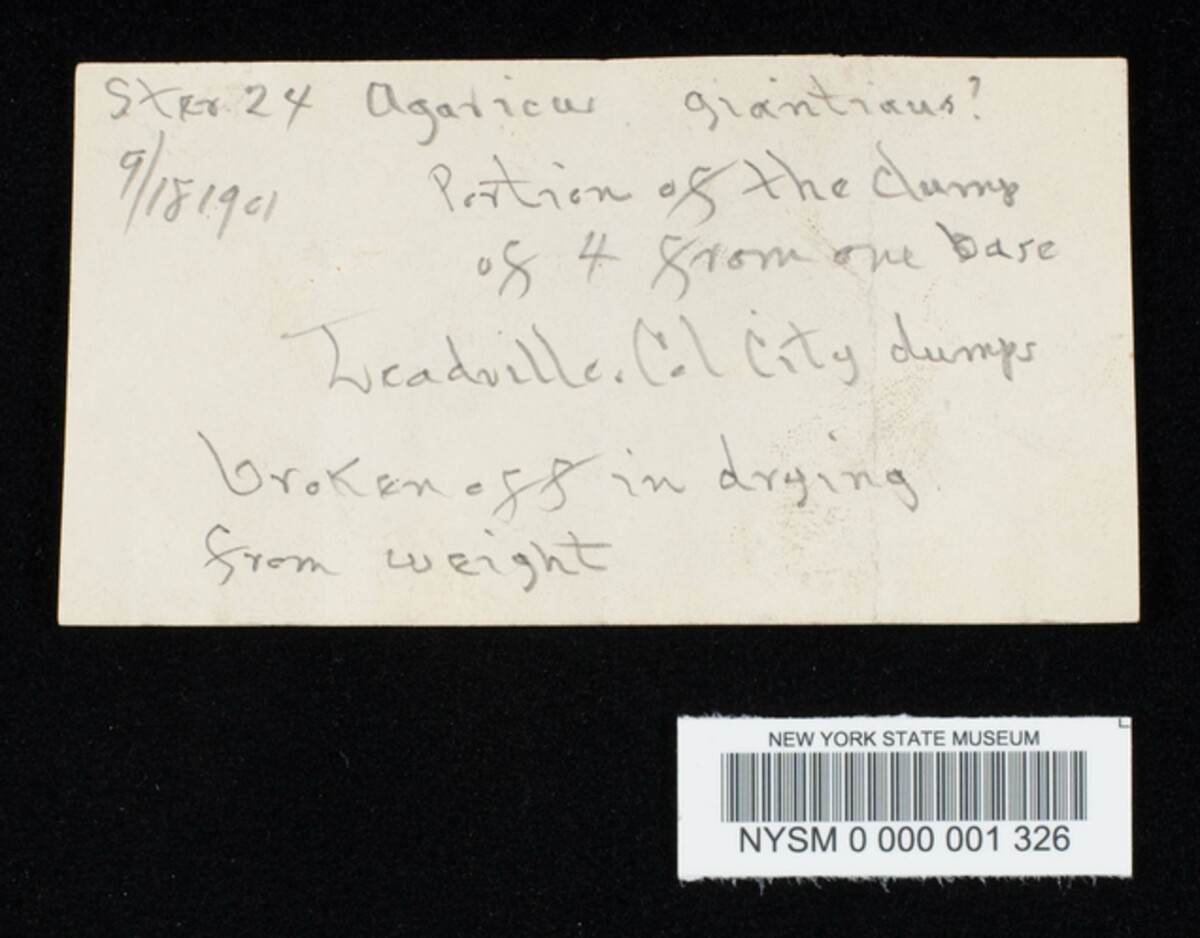 Ster 24 Agaricus giantiaus?
9/18 1901 Portion of the clump
of 4 from one base
Leadville. Col City dumps
broken off in drying
from weight
NEW YORK STATE MUSEUM
NYSM 0 000 001 326